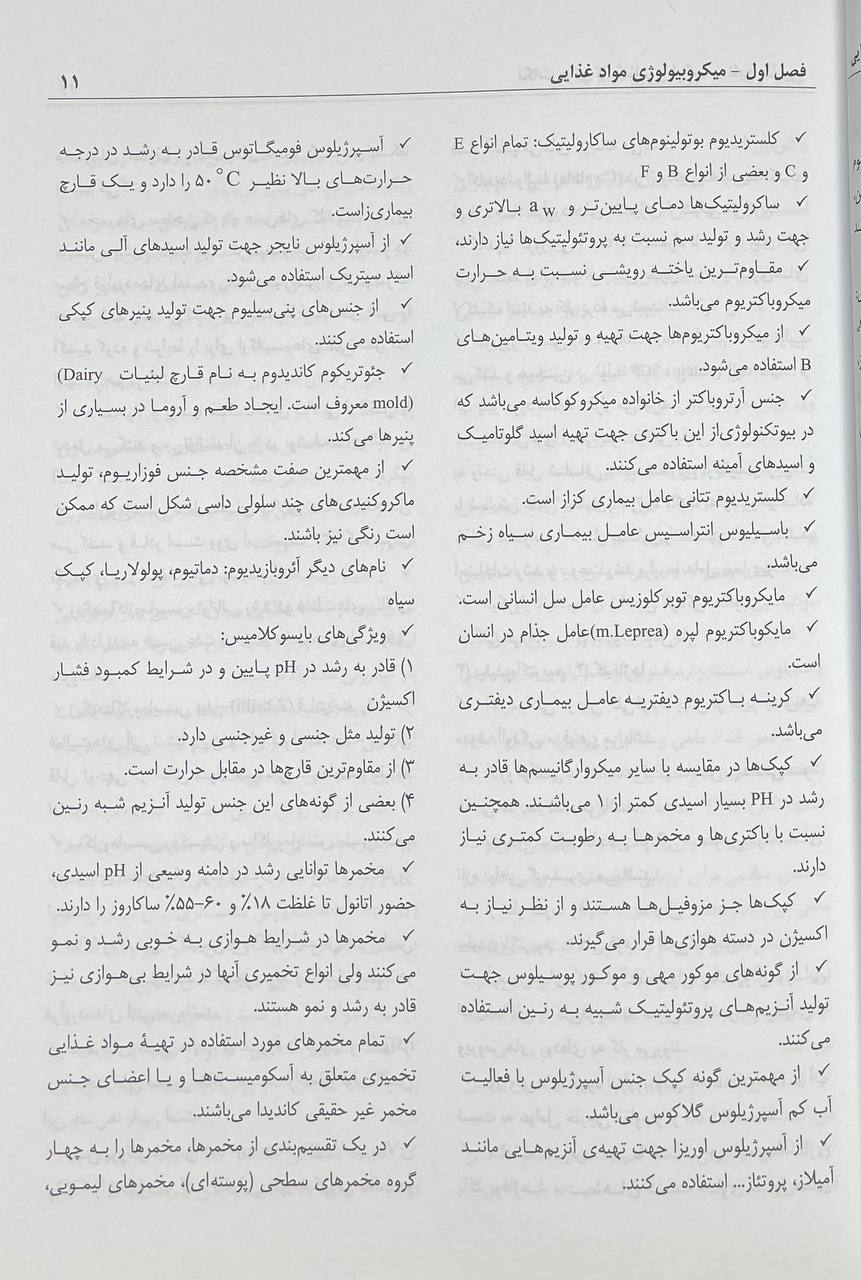 فصل اول – میکروبیولوژی مواد غذایی
۱۱
✓ کلستریدیوم بوتولینوم‌های ساکارولیتیک: تمام انواع E
و C و بعضی از انواع B و F
✓ ساکرولیتیک‌ها دمای پایین‌تر و aw بالاتری و
جهت رشد و تولید سم نسبت به پروتئولیتیک‌ها نیاز دارند،
✓ مقاوم‌ترین یاخته رویشی نسبت به حرارت
میکروباکتریوم می‌باشد.
✓ از میکروباکتریوم‌ها جهت تهیه و تولید ویتامین‌های
B استفاده می‌شود.
✓ جنس آرتروباکتر از خانواده میکروکوکاسه می‌باشد که
در بیوتکنولوژی‌از این باکتری جهت تهیه اسید گلوتامیک
و اسیدهای آمینه استفاده می‌کنند.
✓ کلستریدیوم تتانی عامل بیماری کزاز است.
✓ باسیلیوس انتراسیس عامل بیماری سیاه زخم
می‌باشد.
✓ مایکروباکتریوم توبرکلوزیس عامل سل انسانی است.
✓ مایکوباکتریوم لپره (m.Leprea)عامل جذام در انسان
است.
✓ کرینه باکتریوم دیفتریه عامل بیماری دیفتری
می‌باشد.
✓ کپک‌ها در مقایسه با سایر میکروارگانیسم‌ها قادر به
رشد در PH بسیار اسیدی کمتر از ۱ می‌باشند. همچنین
نسبت با باکتری‌ها و مخمرها به رطوبت کمتری نیاز
دارند.
✓ کپک‌ها جز مزوفیل‌ها هستند و از نظر نیاز به
اکسیژن در دسته هوازی‌ها قرار می‌گیرند.
✓ از گونه‌های موکور مهی و موکور پوسیلوس جهت
تولید آنزیم‌های پروتئولیتیک شبیه به رنین استفاده
می‌کنند.
✓ از مهمترین گونه کپک جنس آسپرژیلوس با فعالیت
آب کم آسپرژیلوس گلاکوس می‌باشد.
✓ از آسپرژیلوس اوریزا جهت تهیه‌ی آنزیم‌هایی مانند
آمیلاز، پروتئاز... استفاده می‌کنند.
✓ آسپرژیلوس فومیگاتوس قادر به رشد در درجه
حرارت‌های بالا نظیر ۵۰°C را دارد و یک قارچ
بیماری‌زاست.
✓ از آسپرژیلوس نایجر جهت تولید اسیدهای آلی مانند
اسید سیتریک استفاده می‌شود.
✓ از جنس‌های پنی‌سیلیوم جهت تولید پنیرهای کپکی
استفاده می‌کنند.
✓ جئوتریکوم کاندیدوم به نام قارچ لبنیات (Dairy
mold) معروف است. ایجاد طعم و آروما در بسیاری از
پنیرها می‌کند.
✓ از مهمترین صفت مشخصه جنس فوزاریوم، تولید
ماکروکنیدی‌های چند سلولی داسی شکل است که ممکن
است رنگی نیز باشند.
✓ نام‌های دیگر آئروبازیدیوم: دماتیوم، پولولاریا، کپک
سیاه
✓ ویژگی‌های بایسوکلامیس:
۱) قادر به رشد در pH پایین و در شرایط کمبود فشار
اکسیژن
۲) تولید مثل جنسی و غیرجنسی دارد.
۳) از مقاوم‌ترین قارچ‌ها در مقابل حرارت است.
۴) بعضی از گونه‌های این جنس تولید آنزیم شبه رنین
می‌کنند.
✓ مخمرها توانایی رشد در دامنه وسیعی از pH اسیدی،
حضور اتانول تا غلظت ۱۸٪ و ۶۰–۵۵٪ ساکاروز را دارند.
✓ مخمرها در شرایط هوازی به خوبی رشد و نمو
می‌کنند ولی انواع تخمیری آنها در شرایط بی‌هوازی نیز
قادر به رشد و نمو هستند.
✓ تمام مخمرهای مورد استفاده در تهیهٔ مواد غذایی
تخمیری متعلق به آسکومیست‌ها و یا اعضای جنس
مخمر غیر حقیقی کاندیدا می‌باشند.
✓ در یک تقسیم‌بندی از مخمرها، مخمرها را به چهار
گروه مخمرهای سطحی (پوسته‌ای)، مخمرهای لیمویی،